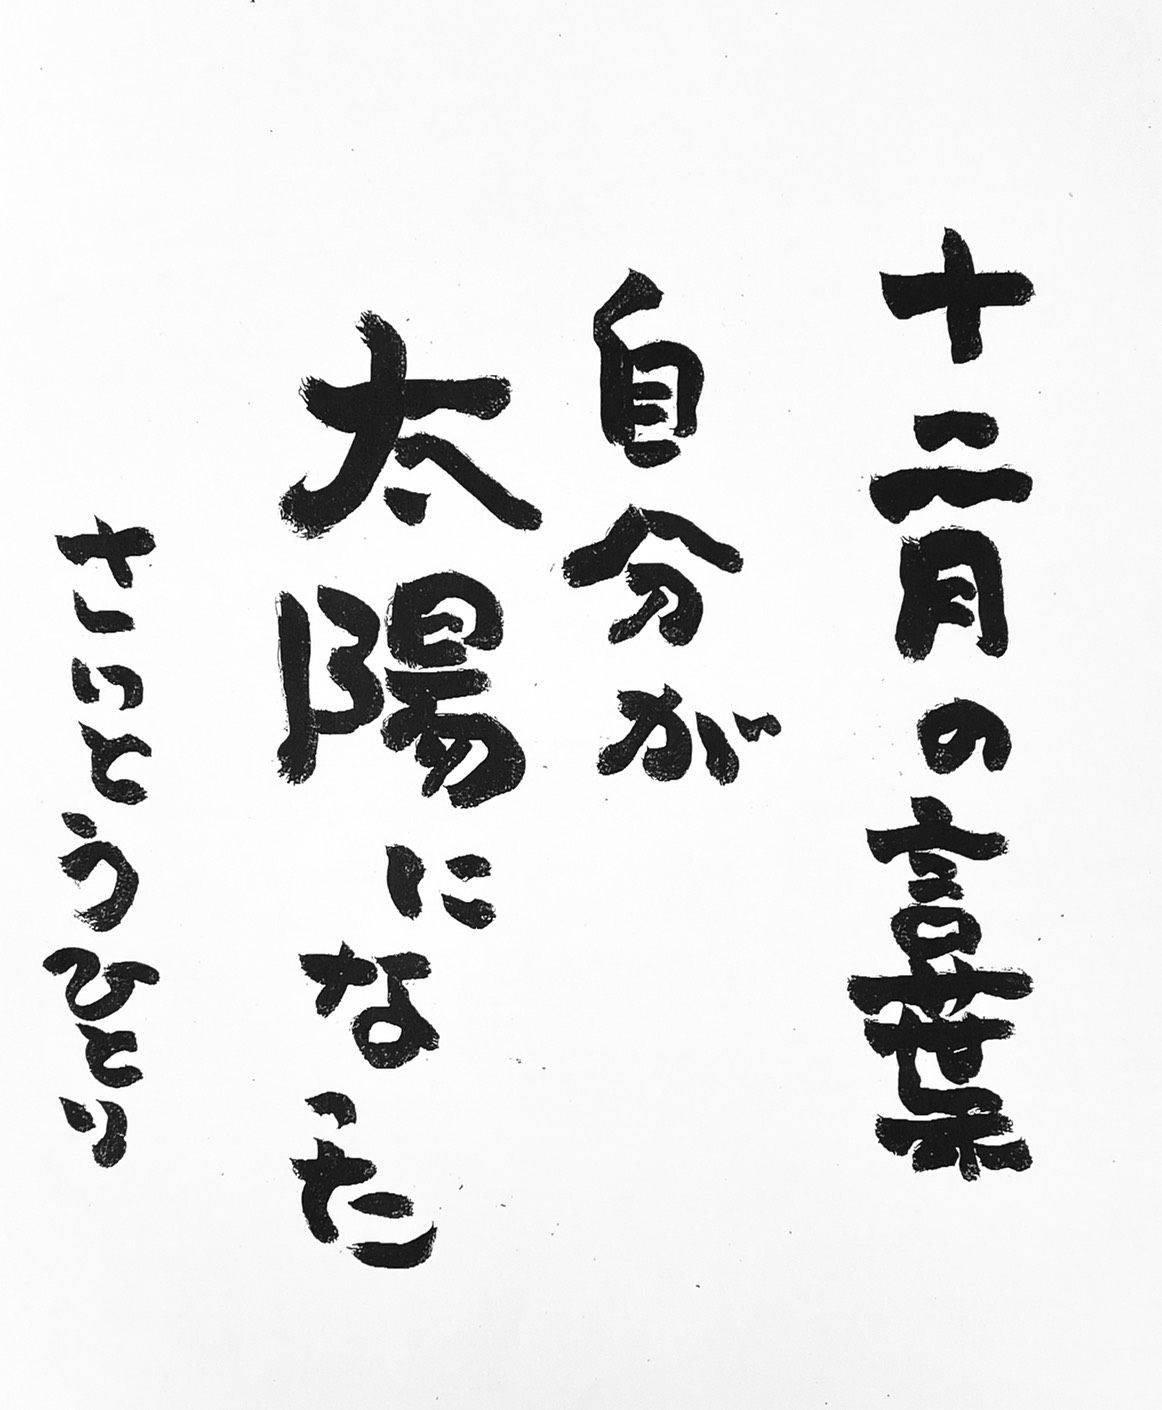 十二月の言葉
自分が
太陽になった
さいとうひとり